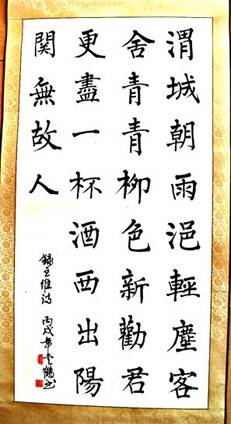 渭城朝雨浥輕塵客
舍青青柳色新勸君
更盡一杯酒西出陽
関無故人
錄王維詩 丙戌年